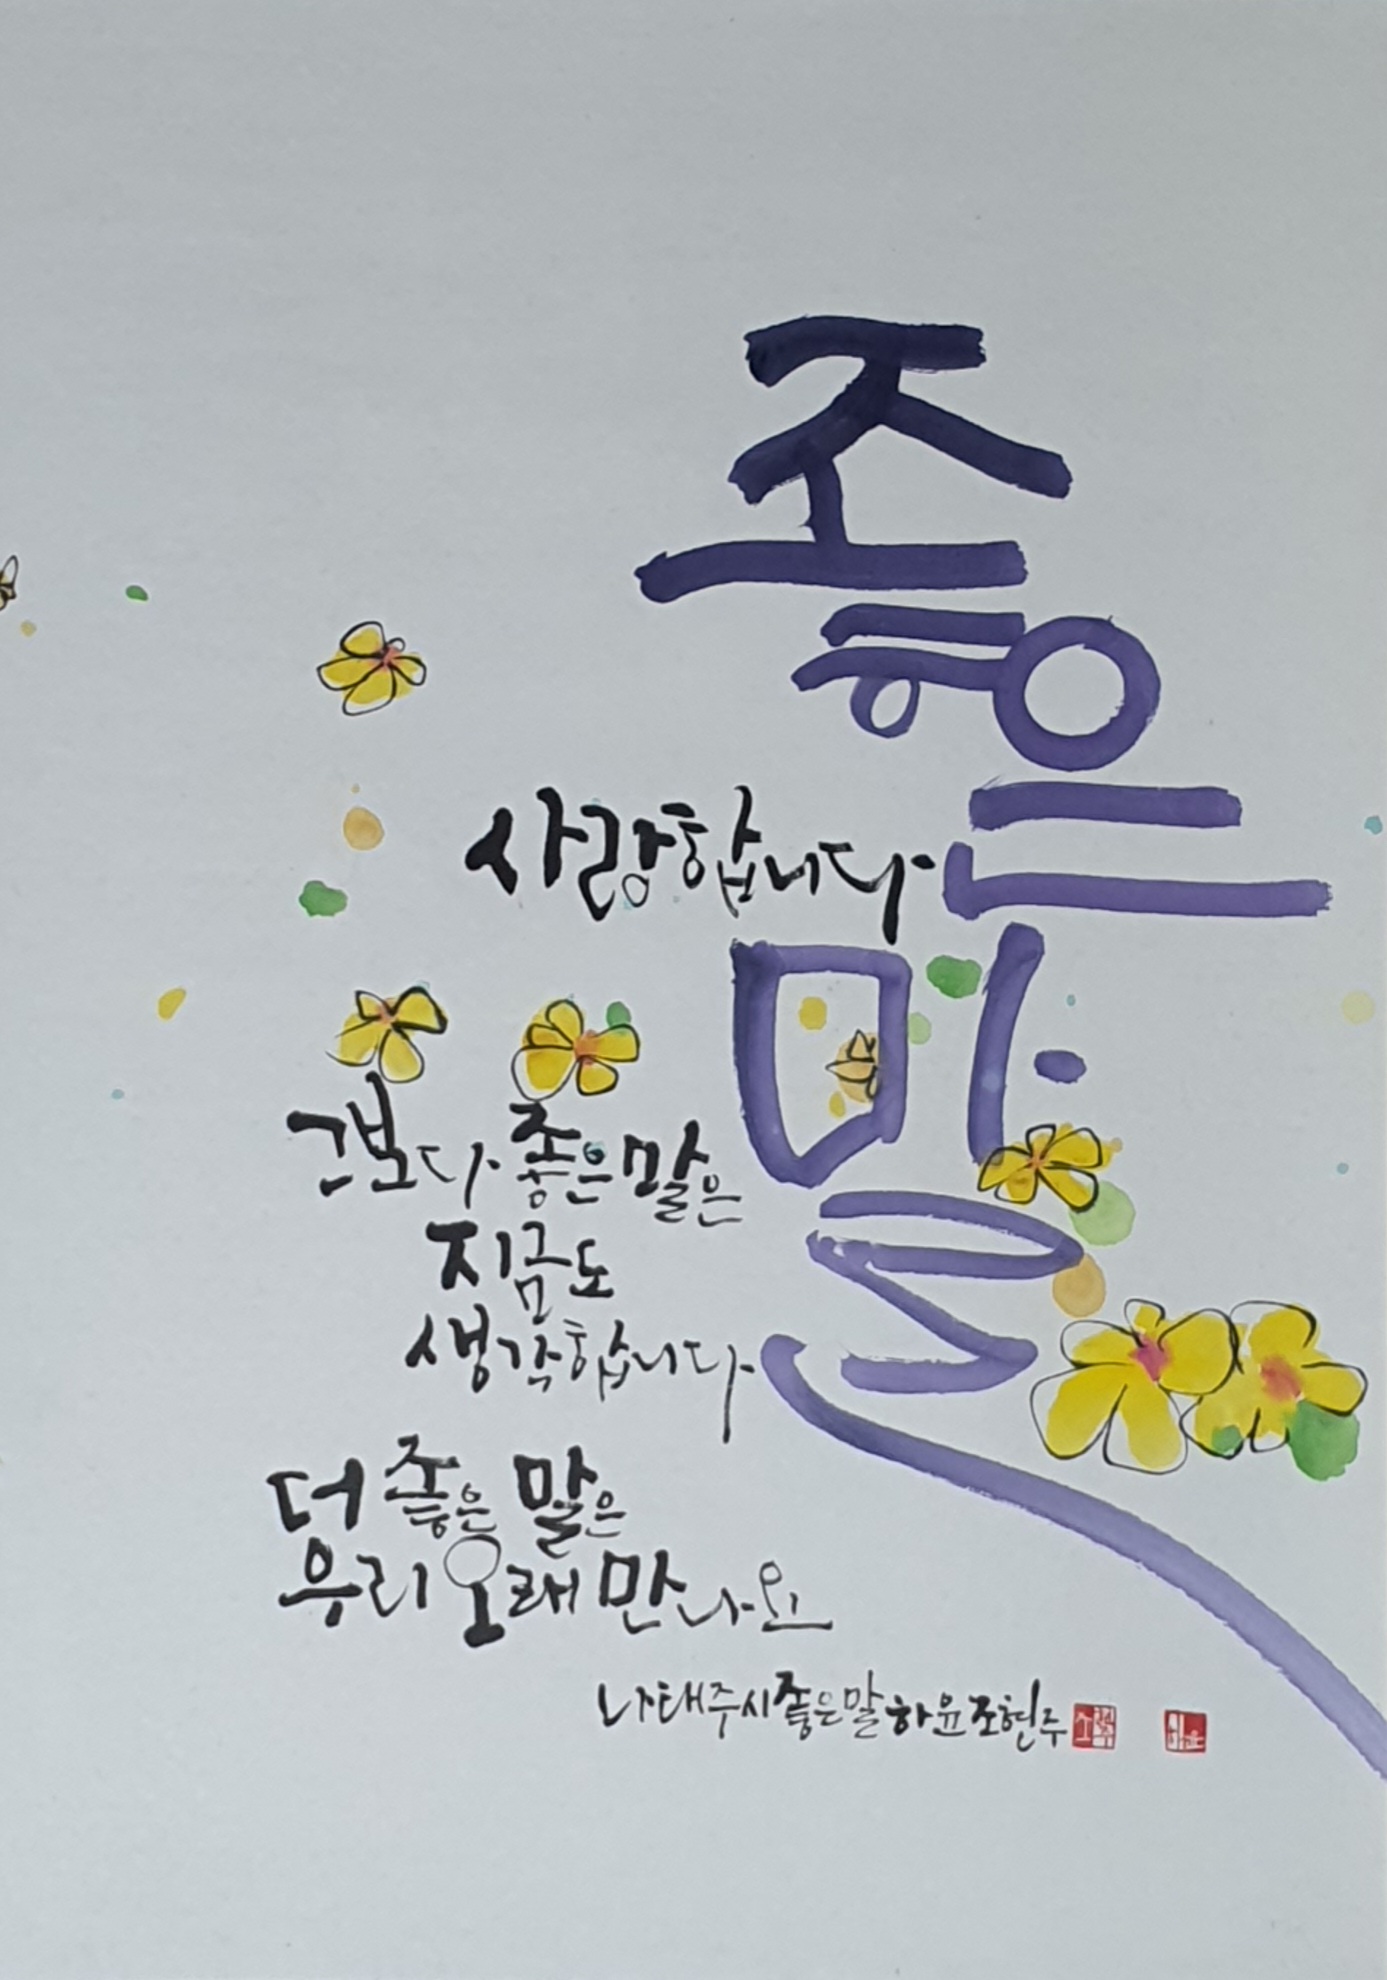 좋은
말
사랑합니다
그보다 좋은 말은
지금도
생각합니다
더 좋은 말은
우리 오래 만나요
나태주 시 좋은 말 하윤 조현주
하윤